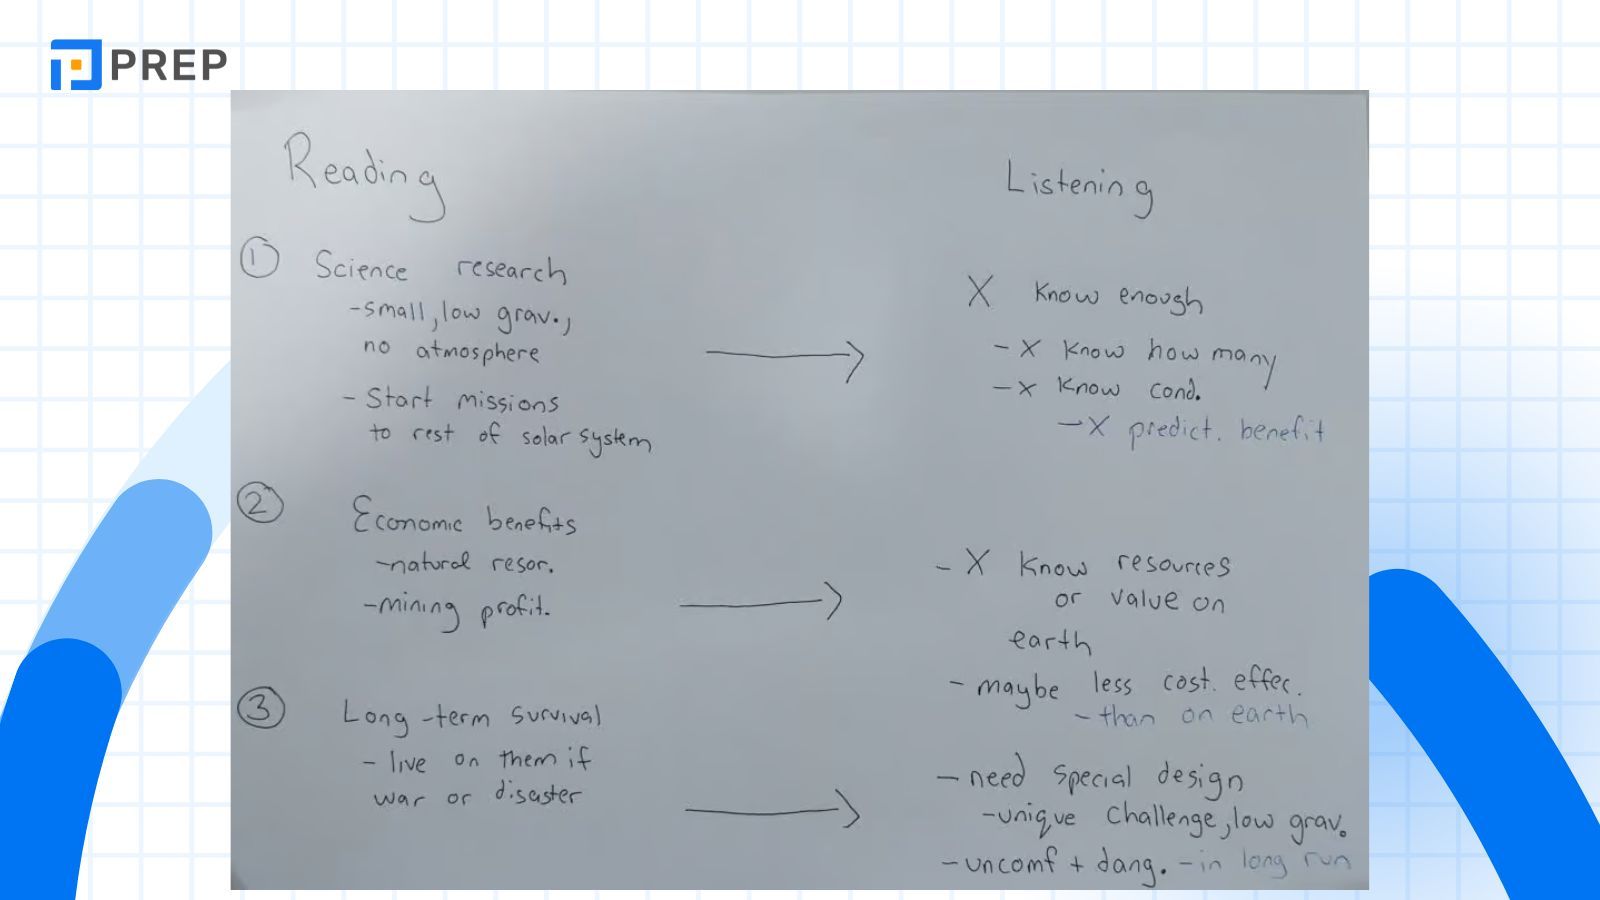 PREP
Reading
① Science research
-small, low grav.,
no atmosphere
- Start missions
to rest of solar system
② Economic benefits
-natural resor.
-mining profit.
③ Long-term survival
- live on them if
war or disaster
Listening
X Know enough
- X Know how many
- X Know cond.
→ X predict. benefit
- X Know resources
or value on
earth
- maybe less cost. effec.
- than on earth
- need special design
-unique challenge, low grav.
-uncomf + dang. - in long run